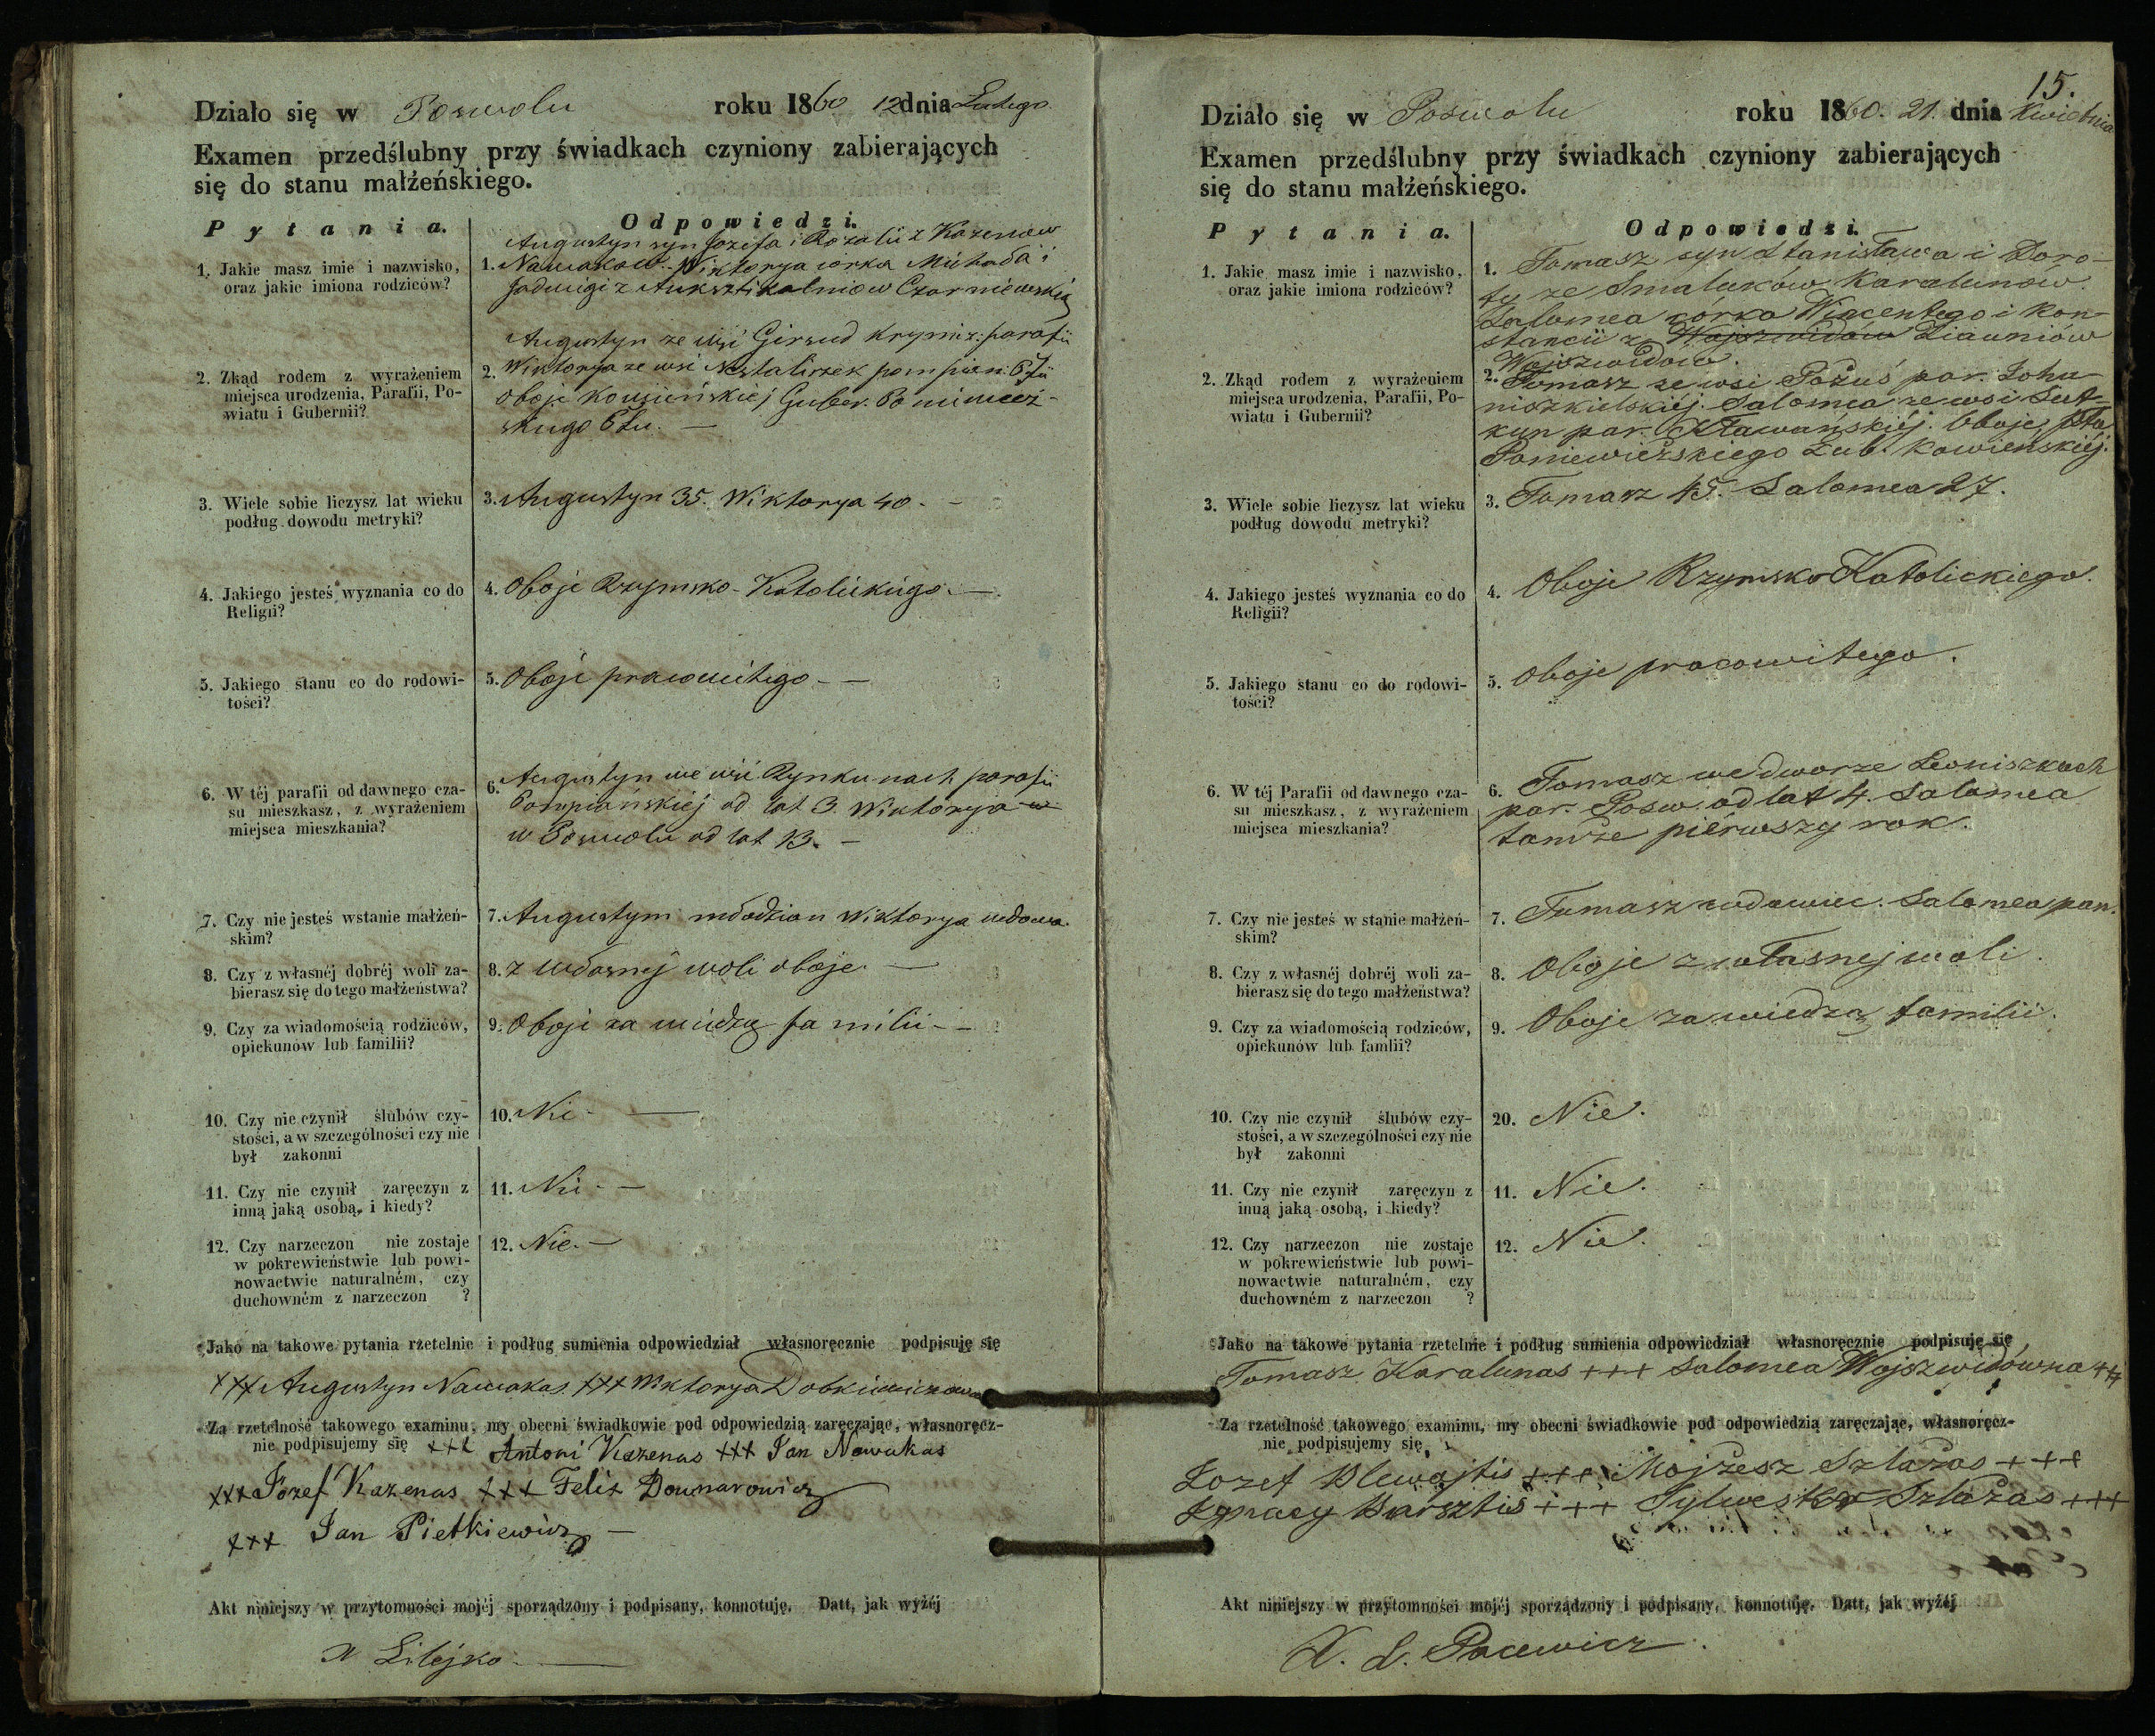 Działo się w Poswolu roku 1860 12 dnia Lutego
Examen przedślubny przy świadkach czyniony zabierających
się do stanu małżeńskiego.
Pytania.
Odpowiedzi.
1. Jakie masz imie i nazwisko,
oraz jakie imiona rodziców?
Augustyn syn Jozefa i Rozalii z Kazenow
1. Nawakow. Wiktorya corka Michała i
Jadwigi z Auksztikalniow
Augustyn ze wsi parafii
2. Zkąd rodem z wyrażeniem
miejsca urodzenia, Parafii, Po-
wiatu i Gubernii?
2. Wiktorya ze wsi
oboje Kowieńskiej Guber. Poniewież-
skiego Ptu. —
3. Wiele sobie liczysz lat wieku
podług dowodu metryki?
3. Augustyn 35. Wiktorya 40. -
4. Jakiego jesteś wyznania co do
Religii?
4. Oboje Rzymsko-Katolickiego. —
5. Jakiego stanu co do rodowi-
tości?
5. Oboje pracowitego - —
6. W téj parafii od dawnego cza-
su mieszkasz, z wyrażeniem
miejsca mieszkania?
6. Augustyn we wsi Rynkunach parafii
Pompiańskiej od lat 3. Wiktorya w
w Poswolu od lat 13. —
7. Czy nie jesteś wstanie małżeń-
skim?
7. Augustyn młodzian Wiktorya wdowa.
8. Czy z własnéj dobréj woli za-
bierasz się do tego małżeństwa?
8. z własnej woli oboje. —
9. Czy za wiadomością rodziców,
opiekunów lub familii?
9. Oboje za wiedzą familii - —
10. Czy nie czynił ślubów czy-
stości, a w szczególności czy nie
był zakonni
10. Nie. —
11. Czy nie czynił zaręczyn z
inną jaką osobą, i kiedy?
11. Nie. —
12. Czy narzeczon nie zostaje
w pokrewieństwie lub powi-
nowactwie naturalném, czy
duchowném z narzeczon ?
12. Nie. —
Jako na takowe pytania rzetelnie i podług sumienia odpowiedział własnoręcznie podpisuję się
+++ Augustyn Nawakas +++ Wiktorya
Za rzetelność takowego examinu, my obecni świadkowie pod odpowiedzią zaręczając, własnoręcz-
nie podpisujemy się +++ Antoni Kazenas +++ Jan Nowakas
+++ Jozef Kazenas +++ Felix Downarowicz
+++ Jan Pietkiewicz —
Akt niniejszy w przytomności mojéj sporządzony i podpisany, konnotuję. Datt, jak wyżéj
X Lilejko. —
15.
Działo się w Poswolu roku 1860. 21. dnia Kwietnia
Examen przedślubny przy świadkach czyniony zabierających
się do stanu małżeńskiego.
Pytania.
Odpowiedzi.
1. Jakie masz imie i nazwisko,
oraz jakie imiona rodziców?
1. Tomasz syn Stanisława i Doro-
ty ze Smaluków Karalunow.
Salomea córka Wincentego i Kon-
stancii z Wojszwidów Liauniów
Wojszwidow.
2. Zkąd rodem z wyrażeniem
miejsca urodzenia, Parafii, Po-
wiatu i Gubernii?
2. Tomasz ze wsi Pożuś par. Joha-
niszkielskiéj. Salomea ze wsi Sut-
kun par. Oboje Ptu
Poniewieżskiego Gub. Kowieńskiéj.
3. Wiele sobie liczysz lat wieku
podług dowodu metryki?
3. Tomasz 45. Salomea 27.
4. Jakiego jesteś wyznania co do
Religii?
4. Oboje Rzymsko Katolickiego.
5. Jakiego stanu co do rodowi-
tości?
5. Oboje pracowitego.
6. W téj Parafii od dawnego cza-
su mieszkasz, z wyrażeniem
miejsca mieszkania?
6. Tomasz we dworze Leoniszkach
par. Posw. od lat 4. Salomea
tamże piérwszy rok.
7. Czy nie jesteś w stanie małżeń-
skim?
7. Tomasz wdowiec. Salomea pan.
8. Czy z własnéj dobréj woli za-
bierasz się do tego małżeństwa?
8. Oboje z własnej woli.
9. Czy za wiadomością rodziców,
opiekunów lub famlii?
9. Oboje za wiedzą familii.
10. Czy nie czynił ślubów czy-
stości, a w szczególności czy nie
był zakonni
20. Nie.
11. Czy nie czynił zaręczyn z
inną jaką osobą, i kiedy?
11. Nie.
12. Czy narzeczon nie zostaje
w pokrewieństwie lub powi-
nowactwie naturalném, czy
duchowném z narzeczon ?
12. Nie.
Jako na takowe pytania rzetelnie i podług sumienia odpowiedział własnoręcznie podpisuję się
Tomasz Karalunas +++ Salomea Wojszwidówna +++
Za rzetelność takowego examinu, my obecni świadkowie pod odpowiedzią zaręczając, własnoręcz-
nie podpisujemy się
Jozef Blewajtis +++ Mojżesz Szlażas +++
Ignacy Barsztis +++ Sylwester Szlażas +++
Akt niniejszy w przytomności mojéj sporządzony i podpisany, konnotuję. Datt, jak wyżéj
X. L. Pacewicz.